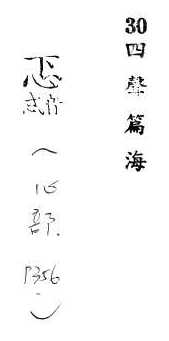 30四聲篇海
(心部 P356)